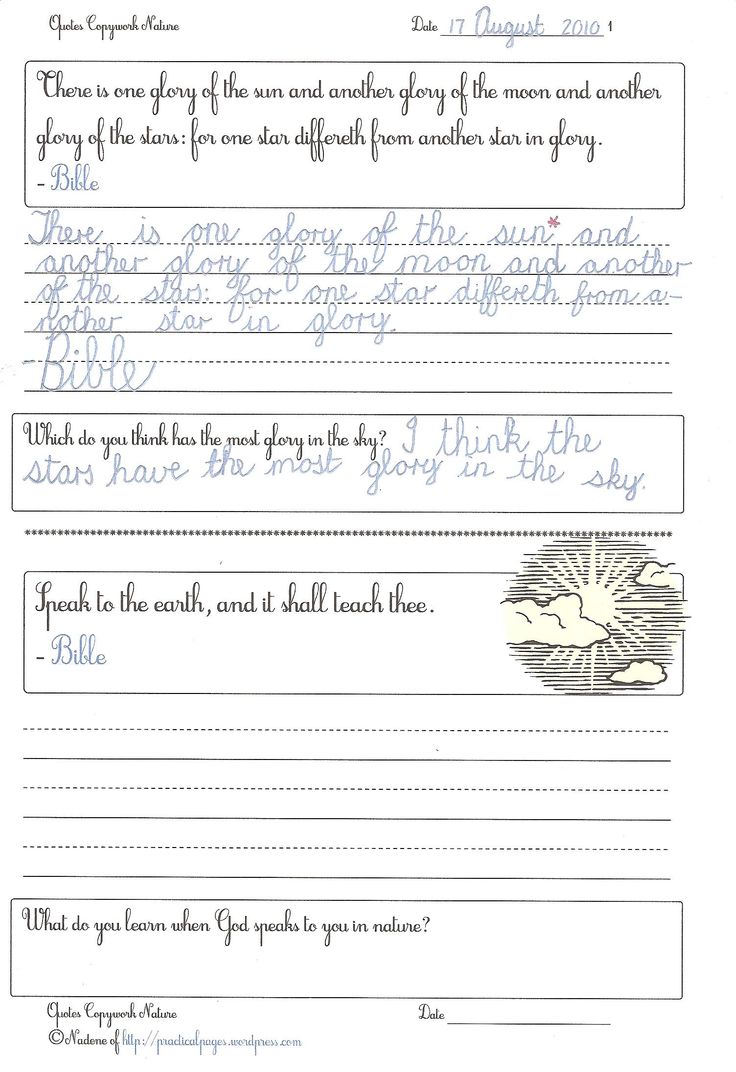 Quotes Copywork Nature Date 17 August 2010 1
There is one glory of the sun and another glory of the moon and another
glory of the stars: for one star differeth from another star in glory.
- Bible
There is one glory of the sun* and
another glory of the moon and another
of the stars: for one star differeth from a-
nother star in glory.
-Bible
Which do you think has the most glory in the sky? I think the
stars have the most glory in the sky.
Speak to the earth, and it shall teach thee.
- Bible
What do you learn when God speaks to you in nature?
Quotes Copywork Nature Date
©Nadene of http://practicalpages.wordpress.com